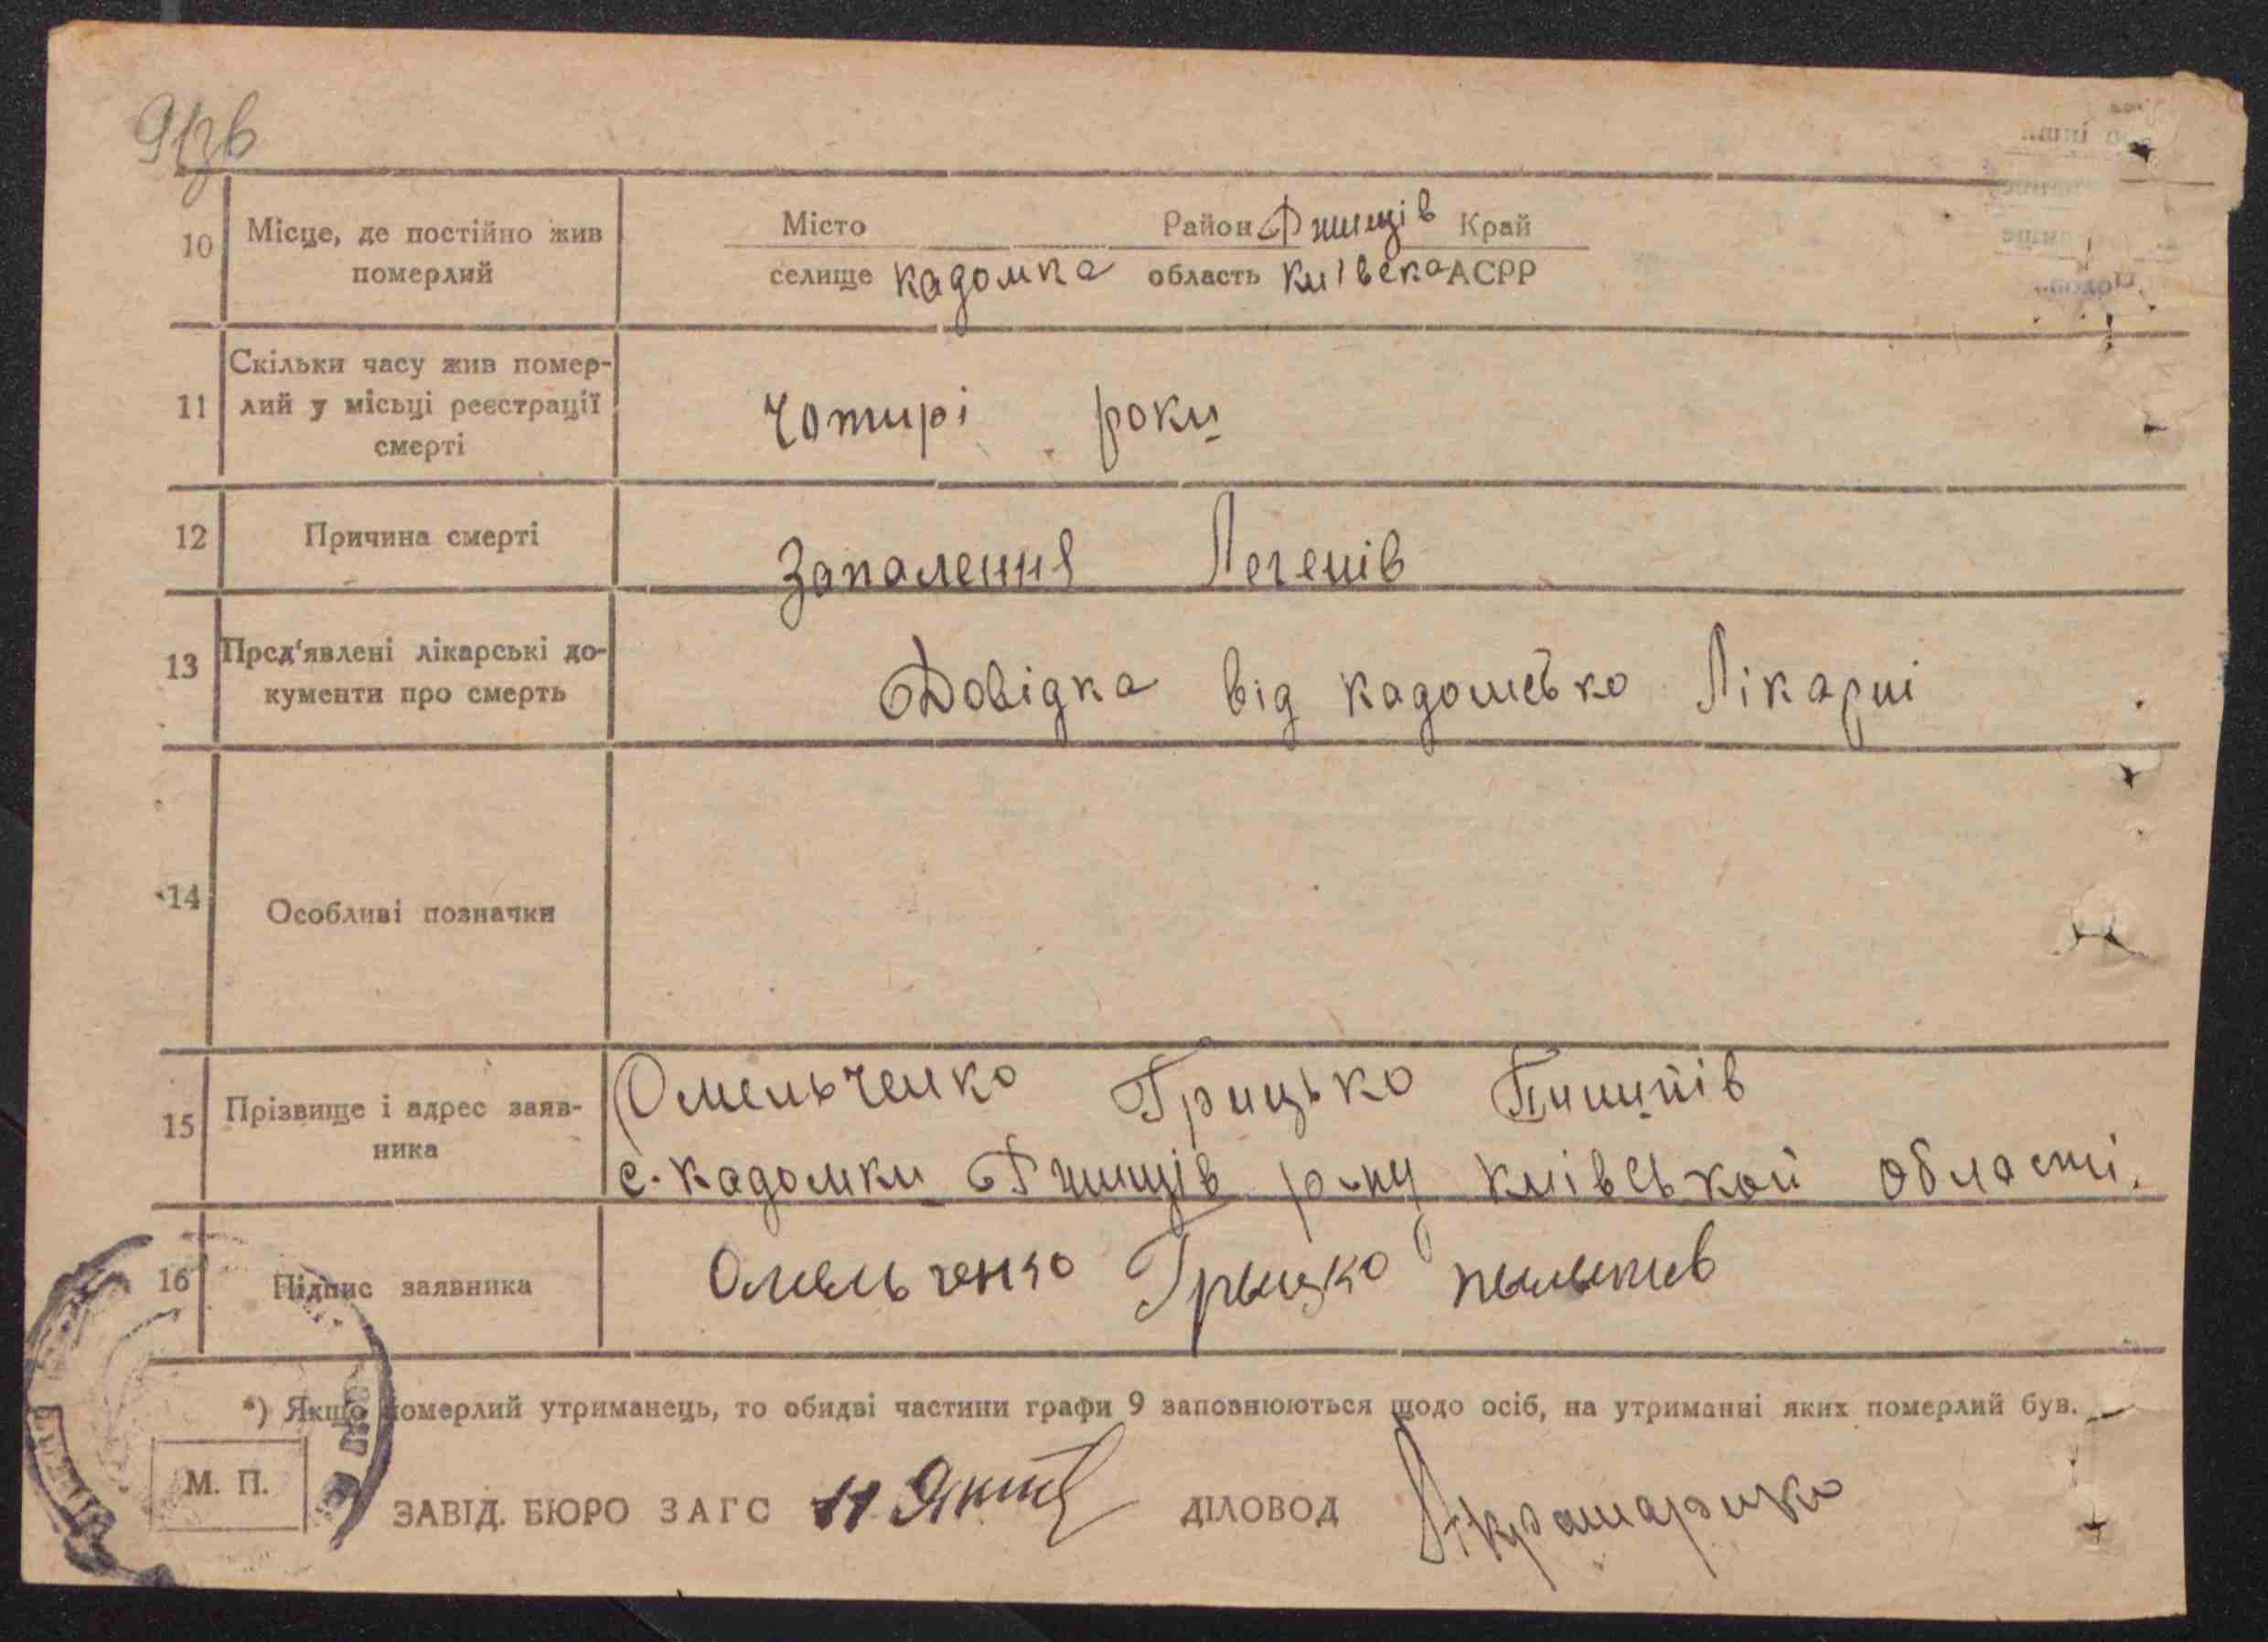 10 Місце, де постійно жив померлий
Місто Район Ржищів Край
селище Кадомка область Київска АСРР
11 Скільки часу жив помер-
лий у місьці реєстрації
смерті
Чотирі роки
12 Причина смерті
Запалення Легенів
13 Пред'явлені лікарські до-
кументи про смерть
Довідка від кадомсько Лікарні
14 Особливі позначки
15 Прізвище і адрес заяв-
ника
Омельченко Грицько Пилипів
с. Кадомки Ржищів р-ну київськой области.
16 Підпис заявника
Омельченко Грыцко
*) Якщо померлий утриманець, то обидві частини графи 9 заповнюються щодо осіб, на утриманні яких померлий був.
М. П.
ЗАВІД. БЮРО ЗАГС ДІЛОВОД